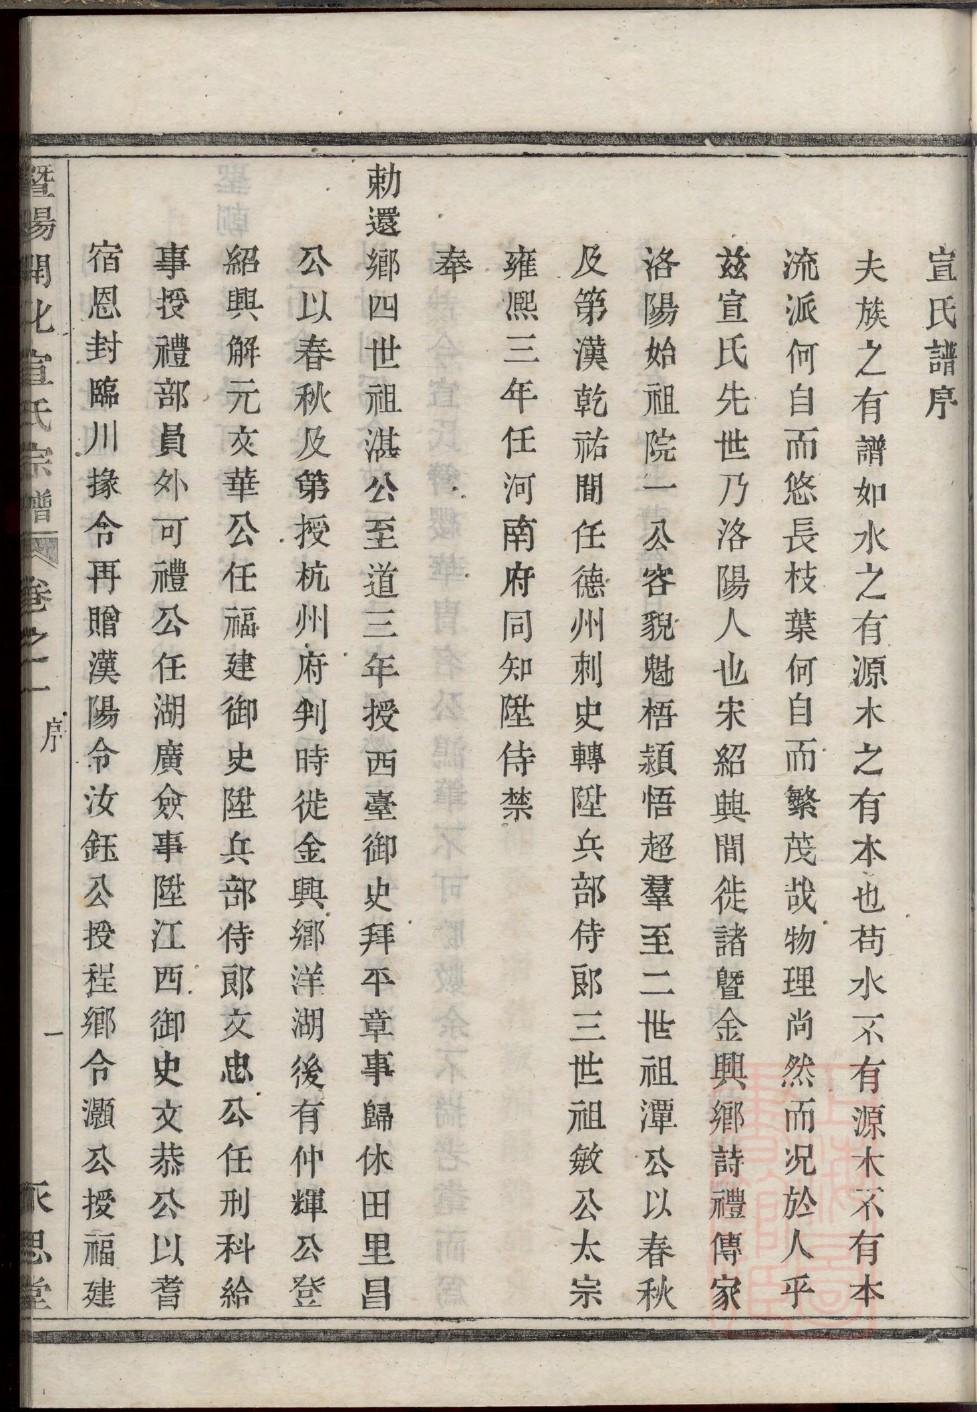 宣氏譜序
夫族之有譜如水之有源木之有本也苟水不有源木不有本
流派何自而悠長枝葉何自而繁茂哉物理尚然而况於人乎
兹宣氏先世乃洛陽人也宋紹興間徙諸暨金興鄉詩禮傳家
洛陽始祖院一公容貌魁梧穎悟超羣至二世祖潭公以春秋
及第漢乾祐間任德州刺史轉陞兵部侍郎三世祖敏公太宗
雍熙三年任河南府同知陞侍禁
奉
勅還鄉四世祖湛公至道三年授西臺御史拜平章事歸休田里昌
公以春秋及第授杭州府判時徙金興鄉洋湖後有仲輝公登
紹興解元文華公任福建御史陞兵部侍郎文忠公任刑科給
事授禮部員外可禮公任湖廣僉事陞江西御史文恭公以耆
宿恩封臨川掾令再贈漢陽令汝鈺公授程鄉令灝公授福建
暨陽開化宣氏宗譜
卷之一
序
一
永思堂